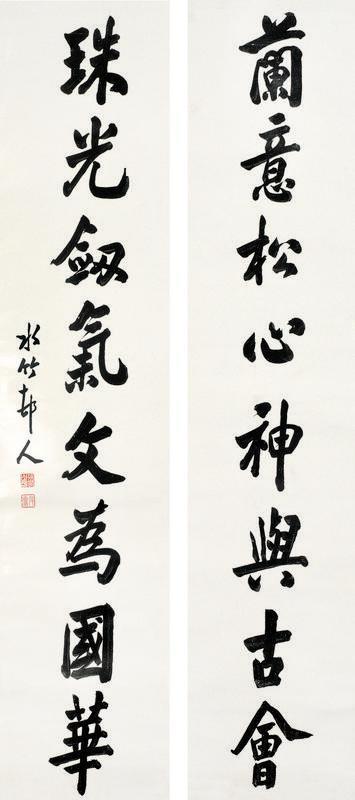 蘭意松心神與古會
珠光劔氣文為國華
水竹邨人